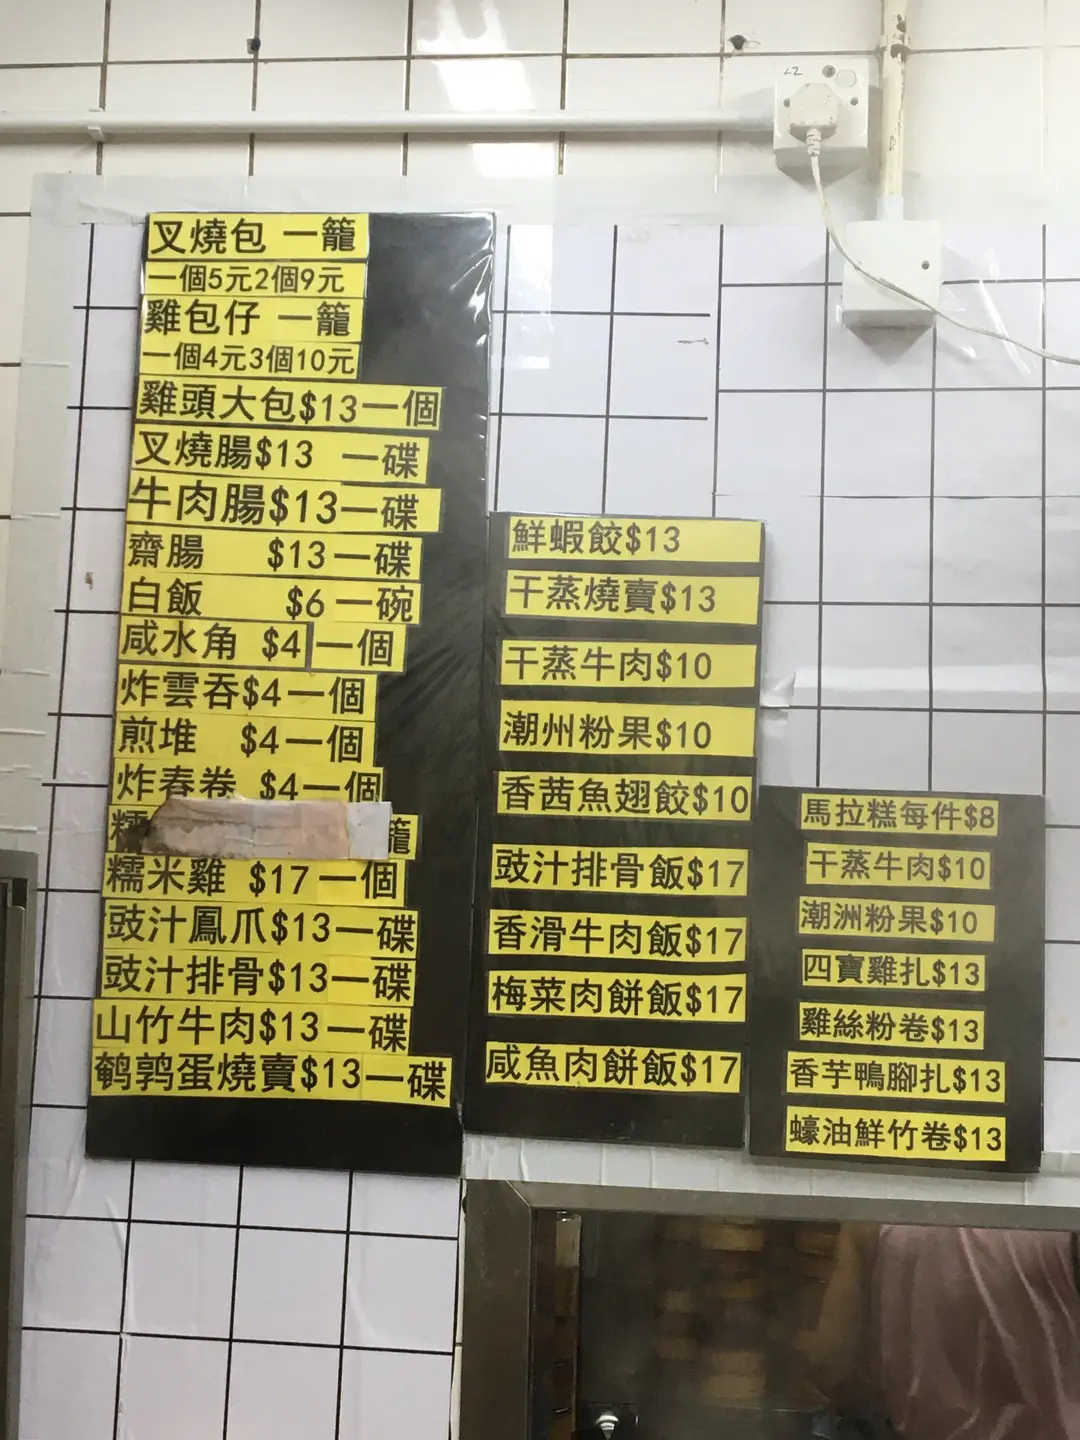 叉燒包 一籠
一個5元2個9元
雞包仔 一籠
一個4元3個10元
雞頭大包$13一個
叉燒腸$13 一碟
牛肉腸$13一碟
齋腸 $13一碟
白飯 $6一碗
咸水角 $4一個
炸雲吞$4一個
煎堆 $4一個
炸春卷 $4一個
糯 籠
糯米雞 $17一個
豉汁鳳爪$13一碟
豉汁排骨$13一碟
山竹牛肉$13一碟
鹌鹑蛋燒賣$13一碟
鮮蝦餃$13
干蒸燒賣$13
干蒸牛肉$10
潮州粉果$10
香茜魚翅餃$10
豉汁排骨飯$17
香滑牛肉飯$17
梅菜肉餅飯$17
咸魚肉餅飯$17
馬拉糕每件$8
干蒸牛肉$10
潮洲粉果$10
四寶雞扎$13
雞絲粉卷$13
香芋鴨腳扎$13
蠔油鮮竹卷$13